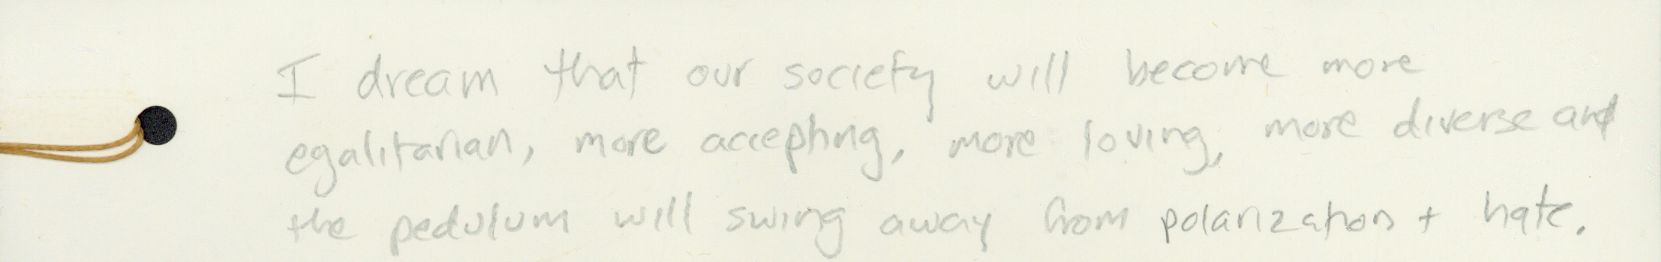 I dream that our society will become more
egalitarian, more accepting, more loving, more diverse and
the pedulum will swing away from polarization + hate.